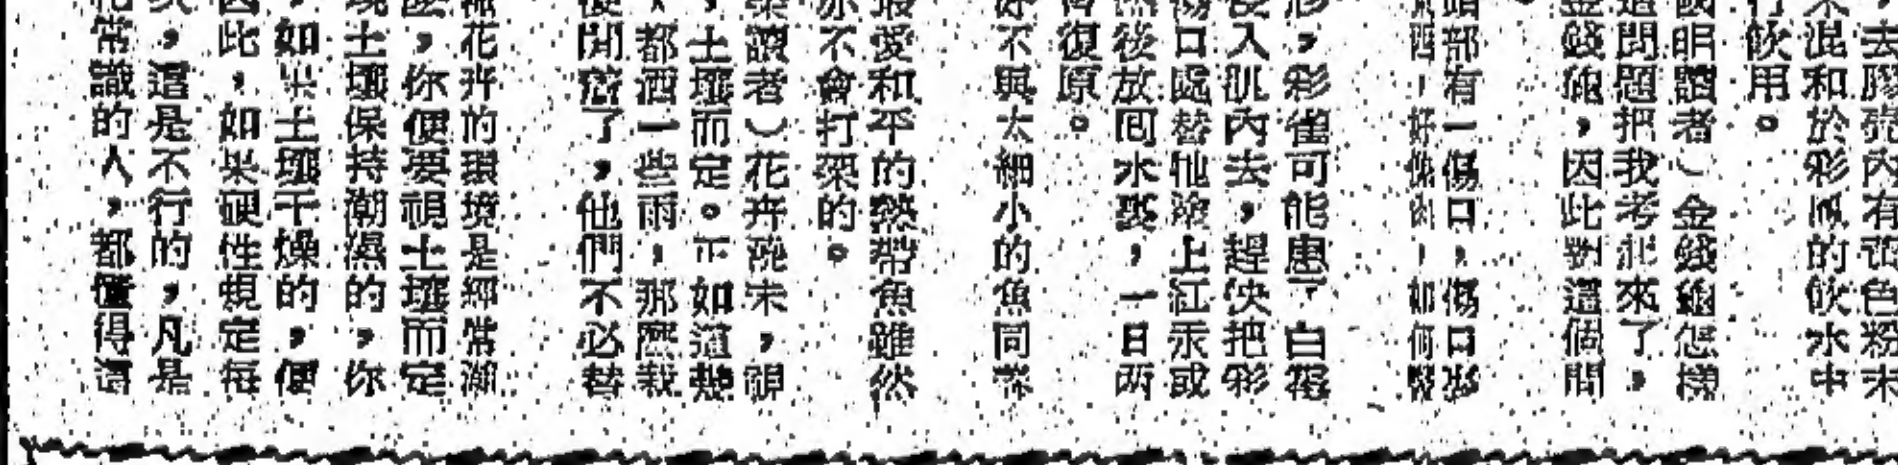 ，去膠壳內有啡色粉末
混和於彩鳳的飲水中
行飲用。
國明讀者）金錢龜怎樣
這問題把我考起來了，
金錢龜，因此對這個問
頭部有一傷口，傷口形
，好像肉，如何醫
形，彩雀可能患了白霉
侵入肌內去，趕快把彩
傷口處替牠滴上紅汞或
然後放回水裏，一日兩
復原。
好不與太細小的魚同羣
最愛和平的熱帶魚雖然
亦不會打架的。
讀者）花卉澆水，視
，土壤而定。正如道幾
，都洒一些雨，那麼栽
便開了，他們不必替
花卉的環境是經常潮
麼，你便要視土壤而定
土壤保持潮濕的，你
，如果土壤干燥的，便
因此，如果硬性規定每
，這是不行的，凡是
常識的人，都懂得這